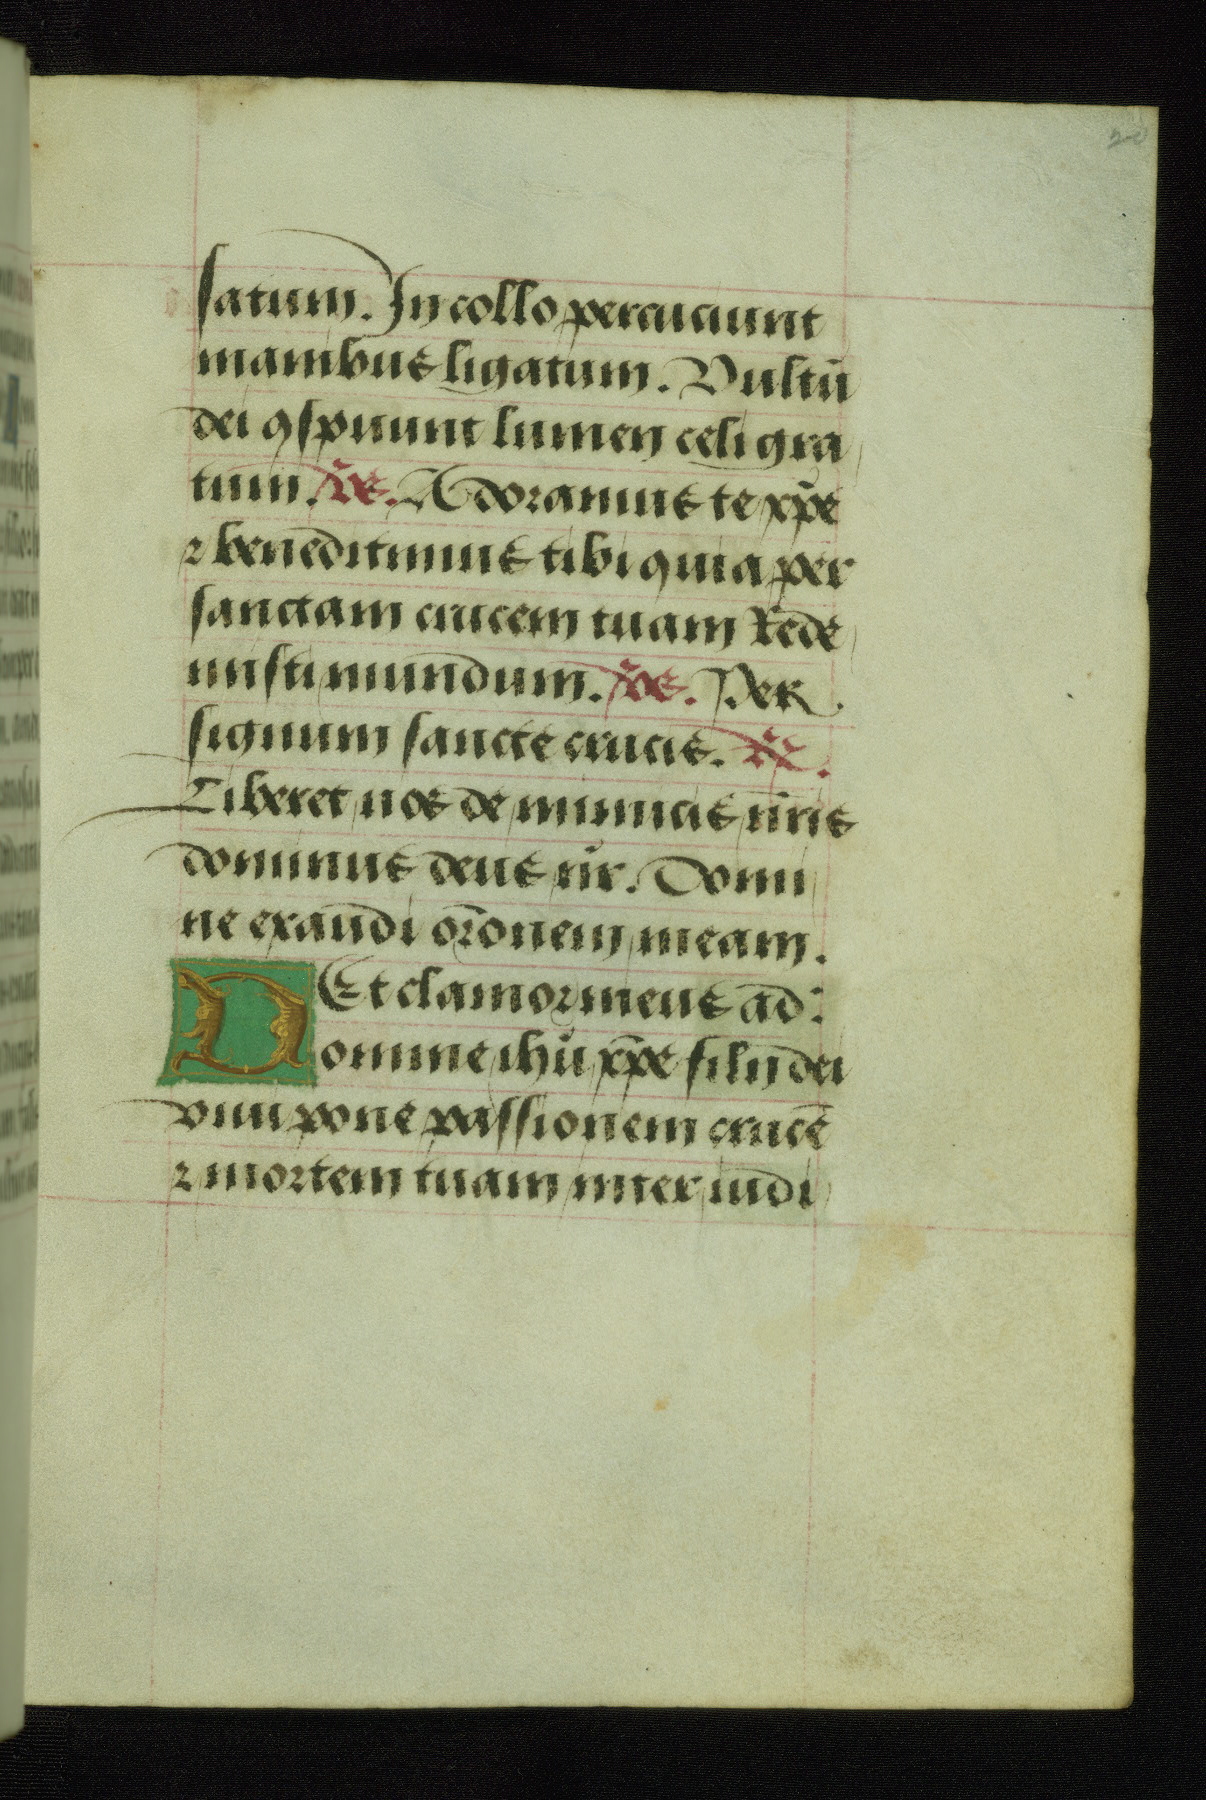 20
satum. In collo percuciunt
manibus ligatum. Vultū
dei ꝯspuunt lumen celi gra
tum. v̄s. Adoramus te xp̄e
⁊ benedicimus tibi quia per
sanctam crucem tuam Rede
misti mundum. v̄s. Per
signum sancte crucis. R̄.
Liberet nos de inimicis nr̄is
dominus deus nr̄. Domi
ne exaudi or̄onem meam.
Et clamor meus ad:
Domine ihū xp̄e filij dei
viui pone passionem crucē
⁊ mortem tuam inter iudi